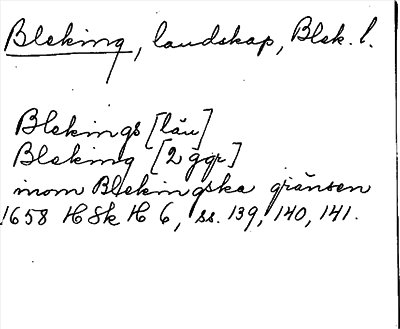 Bleking, landskap, Blek. l.
Blekings [län]
Bleking [2 ggr]
inom Blekingska gränsen
1658 HSk H 6, ss. 139, 140, 141.